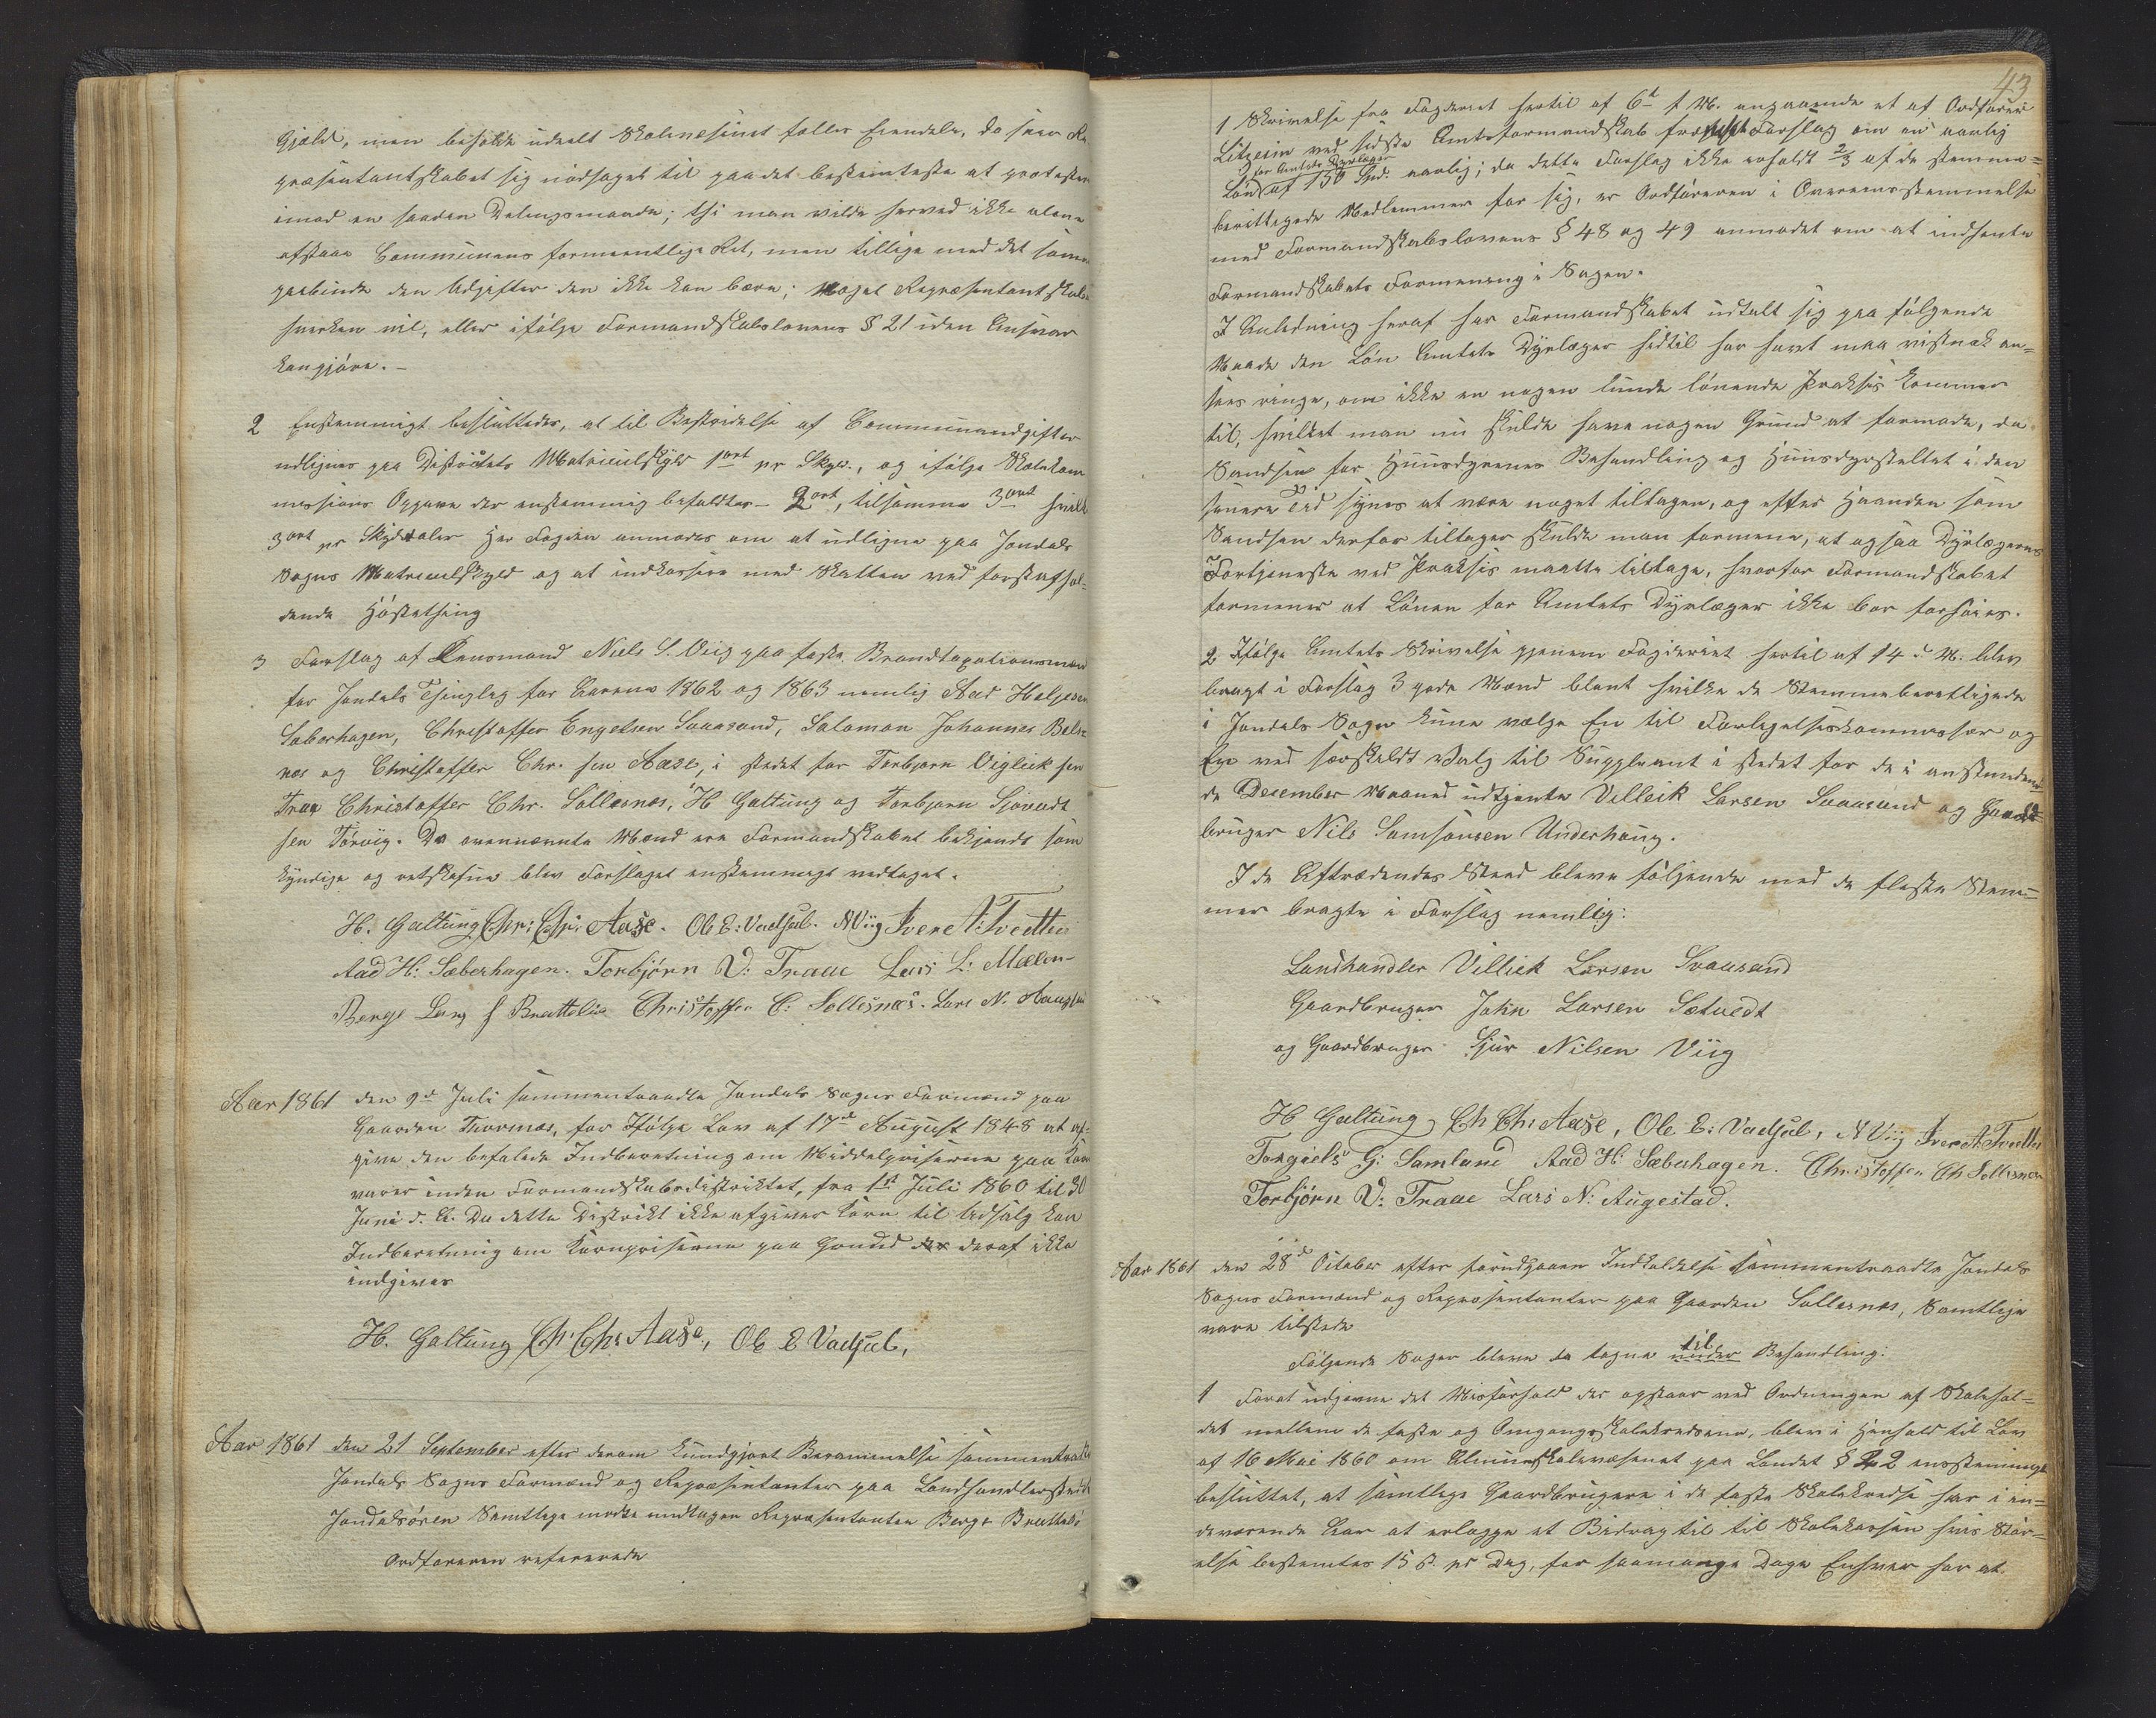 Gjæld, men beholde udeelt Skolevæsenet fælles Eiendele, da seer Re
præsentantskabet sig nødsaget til paa det bestemteste at protestere
imod en saadan Delingsmaade; thi man vilde herved ikke alene
afstaae Communens formeentlige Ret, men tillige med det samme
paabinde den Udgifter den ikke kan bære; Noget Repræsentantskabet
hverken vil, eller ifølge Formandskabslovens § 21 uden Ansvar
kan gjøre. -
2 Enstemmigt besluttedes, at til Bestridelse af Communeudgifter
udlignes paa Distriktets Matriculskyld 1 ort pr Skyld., og ifølge Skolekom
missions Opgave der enstemmig befaldtes - 2 ort, tilsamme 3 ort hvilke
3 ort pr Skylddaler Her Fogden anmodes om at udligne paa Jondals
Sogns Matriculskyld og at indkassere med Skatten ved førstafhol-
dende Høstething
3 Forslag af Lensmand Niels S. Viig paa faste Brandtaxationsmænd
for Jondals Thinglag for Aarene 1862 og 1863 nemlig Aad Helgesen
Sæberhagen, Christoffer Engelsen Svaasand, Salomon Johannes Bels-
nes og Christoffer Chr. sen Aase, i stedet for Torbjørn Vigleik sen
Traa Christoffer Chr. Sollesnæs, H Galtung og Torbjørn Sjovadt
sen Tørvig. Da ovennævnte Mænd ere Formandskabet bekjendt som
kyndige og retskafne blev Forslaget enstemmigt vedtaget.
H. Galtung Chr: Chr: Aase. Ole E: Vadsel. N Viig Iver A: Tvedtene
Aad H: Sæberhagen. Torbjørn V: Traae Lars L: Mælen-
Berge Lars s Brattelie Christoffer C: Sollesnæs. Lars N. Haugstad
Aar 1861 den 9d Juli sammentraadte Jondals Sogns Formænd paa
Gaarden Thornæs, for Ifølge Lov af 17d August 1848 at af-
give den befalede Indberetning om Middelpriserne paa Korn
varer inden Formandskabsdistriktet, fra 1st Juli 1860 til 30
Juni d. A. Da dette Distrikt ikke afgiver Korn til Udsalg kan
Indberetning om Kornpriserne paa Grund der deraf ikke
indgives
H. Galtung Ch: Chr Aase, Ole E Vadsel,
Aar 1861 den 21 September efter derom kundgjort Berammelse sammentraadte
Jondals Sogns Formænd og Repræsentanter paa Landhandlerstedet
Jondalsøren Samtlige mødte undtagen Repræsentanten Berge Brattelie
Ordføreren refererede
43
1 Skrivelse fra Fogderiet hertil af 6te f. M. angaaende et af Ordfører
Litzeim ved sidste Amtsformandskab fremsat Forslag om en aarlig
for Amtets Dyrlæge
Løn af 150 Spd. aarlig; da dette Forslag ikke erholdt 2/3 af de stemme-
berettigede Medlemmer for sig, er Ordføreren i Overeensstemmelse
med Formandskabslovens § 48 og 49 anmodet om at indhente
Formandskabets Formening i Sagen.
I Anledning heraf har Formandskabet udtalt sig paa følgende
Maade den Løn Amtets Dyrlæger hidtil har havt maa vistnok an-
sees ringe, om ikke en nogen lunde lønende Praksis kommer
til, hvilket man nu skulde have nogen Grund at formode, da
Sandsen for Huusdyrenes Behandling og Huusdyrstellet i den
senere Tid synes at være noget tiltagen, og efter Haanden som
Sandsen derfor tiltager skulde man formene, at ogsaa Dyrlægens
Fortjeneste ved Praksis maatte tiltage, hvorfor Formandskabet
formener at Lønen for Amtets Dyrlæger ikke bør forhøies.
2 Ifølge Amtets Skrivelse gjenem Fogderiet hertil af 14 d. M. blev
bragt i Forslag 3 gode Mænd blant hvilke de Stemmeberettigede
i Jondals Sogn kune vælge En til Forligelseskommissær og
En ved særskeldt Valg til Suppleant i stedet for de i anstunden-
de December Maaned udtjente Villeik Larsen Svaasand og Gaard-
bruger Nils Samsonsen Underhaug.
I de Aftrædendes Sted bleve følgende med de fleste Stem-
mer bragte i Forslag nemlig:
Landhandler Villiek Larsen Svausand
Gaardbruger John Larsen Sætvedt
og Gaardbruger Sjur Nilsen Viig
H Galtung, Ch Chr Aase, Ole E: Vadsel, N Viig Iver A Tvedte
Torgiels G: Samland Aad H: Sæberhagen. Christoffer Ch Sollesnæs
Torbjørn V: Traae Lars N: Augestad.
Aar 1861 den 28d October efter forudgaaen Indkaldelse sammentraadte Jondals
Sogns Formænd og Repræsentanter paa Gaarden Sollesnæs, Samtlige
vare tilstede
til
Følgende Sager bleve da tagne under Behandling:
1 Forat udjevne det Misforhold der opstaar ved Ordningen af Skolehol-
det mellem de faste og Omgangsskolekredsene, blev i Henhold til Lov
af 16 Mai 1860 om Almueskolevæsenet paa Landet § 22 ensstemmigt
besluttet, at samtlige Gaardbrugere i de faste Skolekredse har i in-
deværende Aar at erlægge et Bidrag til til Skolekassen hvis Stør-
else bestemtes 15 s. pr Dag, for saamange Dage Enhver har at